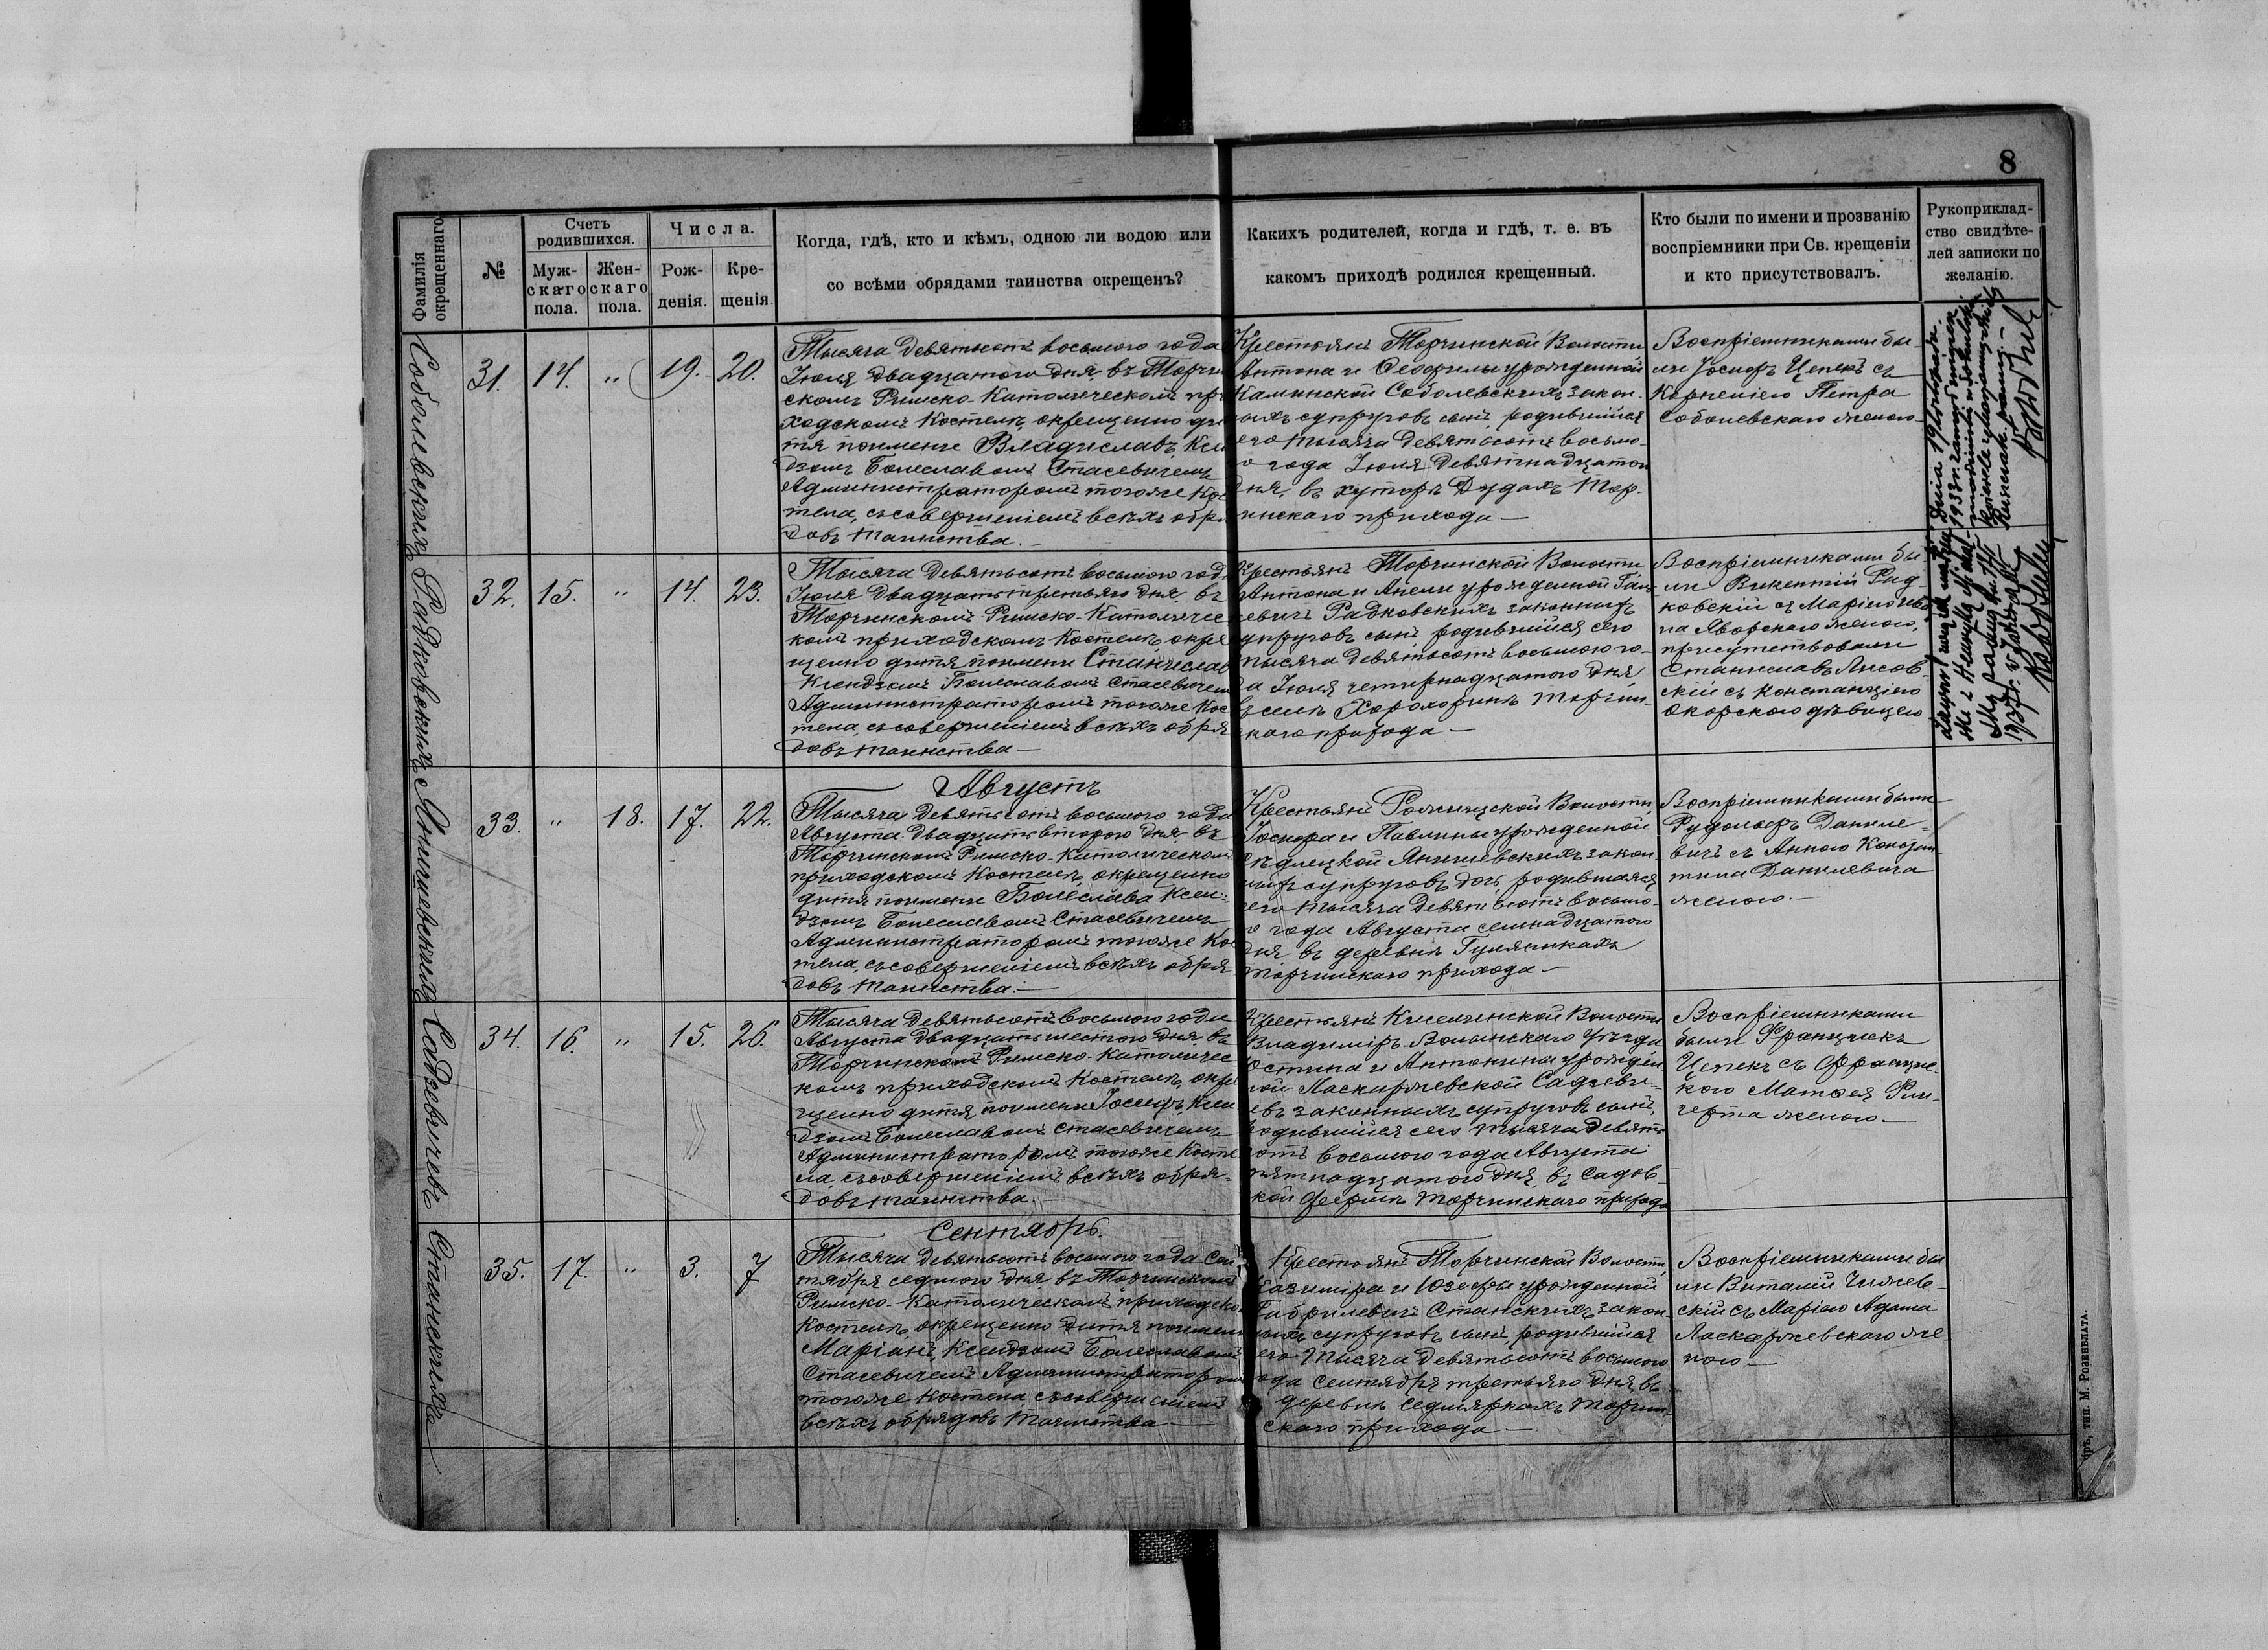 8
Фамилія
окрещеннаго
№
Счетъ
родившихся.
Муж-
скаго
пола.
Жен-
скаго
пола.
Числа.
Рож-
денія.
Кре-
щенія.
Когда, гдѣ, кто и кѣмъ, одною ли водою или
со всѣми обрядами таинства окрещенъ?
Какихъ родителей, когда и гдѣ, т. е. въ
какомъ приходѣ родился крещенный.
Кто были по имени и прозванію
воспріемники при Св. крещеніи
и кто присутствовалъ.
Рукоприклад-
ство свидѣте-
лей записки по
желанію.
Соболевскихъ
31. 14. " 19. 20.
Тысяча девятьсотъ восьмого года
Іюля двадцатого дня, въ Торчи
скомъ Римско-Католическомъ пр
ходскомъ Костелѣ, окрещено ди
тя по имени Владиславъ, Ксен
дзомъ Болеславомъ Стасевичемъ
Администраторомъ того же Кос
тела, съ совершеніемъ всѣхъ обря
довъ таинства.
Крестьянъ Торчинской Волости
Антона и Теофилы урожденной
Каминской Соболевскихъ закон
ыхъ супруговъ сынъ, родившійся
его тысяча девятьсотъ восьмо-
о года Іюля девятнадцатого
дня, въ хуторѣ Дудахъ Тор-
инскаго прихода —
Воспріемниками бы-
ли Іосифъ Цепекъ съ
Корнеліею Петра
Соболевскаго женою
Dnia 19 listopada
1933 r. zawarł związek
małżeński
Kościele
Радковскихъ
32. 15. " 14. 23.
Тысяча девятьсотъ восьмого год
Іюля двадцать третьяго дня въ
Торчинскомъ Римско-Католичес
комъ приходскомъ Костелѣ, окре
щено дитя по имени Станиславъ
Ксендзомъ Болеславомъ Стасевичемъ
Администраторомъ того же Кос
тела, съ совершеніемъ всѣхъ обря
довъ таинства —
Крестьянъ Торчинской Волости
Антона и Анели урожденной Ган
евичъ Радковскихъ законныхъ
супруговъ сынъ, родившійся сего
тысяча девятьсотъ восьмого го-
да Іюля четырнадцатого дня,
въ селѣ Хорохоринѣ Торчин-
скаго прихода —
Воспріемниками бы-
ли Викентій Рад-
ковскій съ Маріею
Яворскаго женою,
присутствовали
Станиславъ Лисов-
скій съ Констанціею
Окорскою дѣвицею
Янишевскихъ
Августъ
33. " 18. 17. 22.
Тысяча девятьсотъ восьмого года
Августа двадцать второго дня въ
Торчинскомъ Римско-Католическомъ
приходскомъ Костелѣ, окрещено
дитя по имени Болеслава Ксен-
дзомъ Болеславомъ Стасевичемъ
Администраторомъ того же Кос
тела, съ совершеніемъ всѣхъ обря
довъ таинства. —
Крестьянъ Рожищской Волости,
Іосифа и Павлины урожденной
Янишевскихъ закон
ныхъ супруговъ дочь, родившаяся
сего тысяча девятьсотъ восьмо-
го года Августа семнадцатого
дня, въ деревнѣ Гуляникахъ
Торчинскаго прихода —
Воспріемниками были
Рудольфъ Даниле-
вичъ съ Анною Констан-
тина Данилевича
женою. —
Садзевичевъ
34. 16. " 15. 26.
Тысяча девятьсотъ восьмого года
Августа двадцать шестого дня, въ
Торчинскомъ Римско-Католичес
комъ приходскомъ Костелѣ, окре
щено дитя по имени Іосифъ, Ксен
дзомъ Болеславомъ Стасевичемъ
Администраторомъ того же Косте
ла, съ совершеніемъ всѣхъ обря-
довъ таинства. —
Крестьянъ Киселинской Волости
Владиміръ-Волынскаго Уѣзда
Юстина и Антонины урожден
ной Ласкаржевской Садзеви-
евъ законныхъ супруговъ сынъ,
родившійся сего тысяча девять
сотъ восьмого года Августа
пятнадцатого дня, въ Садов-
кой фермѣ Торчинскаго прихода
Воспріемниками
были Францискъ
Цепекъ съ Францис-
кою Матвея
женою. —
Станскихъ
Сентябрь.
35. 17. " 3. 7
Тысяча девятьсотъ восьмого года Сен
тября седьмого дня, въ Торчинскомъ
Римско-Католическомъ приходско
Костелѣ, окрещено дитя по имени
Маріанъ, Ксендзомъ Болеславомъ
Стасевичемъ Администраторомъ
того же Костела, съ совершеніемъ
всѣхъ обрядовъ таинства —
Крестьянъ Торчинской Волости,
Казиміра и Юзефы урожденной
Габрилевичъ Станскихъ закон-
ныхъ супруговъ сынъ, родившійся
сего тысяча девятьсотъ восьмого
года Сентября третьяго дня, въ
деревнѣ Седмяркахъ Торчин-
скаго прихода —
Воспріемниками бы
ли Виталій Чижев-
скій съ Маріею Адама
Ласкаржевскаго же-
ною —
тип. М. Розенблата.